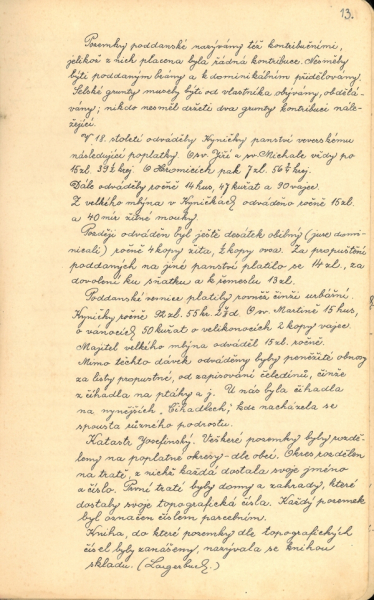 13.
Pozemky poddanské nazývány též kontribučními,
jelikož z nich placena byla řádná kontribuce. Nesměly
býti poddaným brány a k dominikálním přidělovány.
Selské grunty musely býti od vlastníka obývány, obdělá-
vány; nikdo nesměl držeti dva grunty kontribuci nále-
žející.
V 18. století odváděly Kyničky panství veverskému
následující poplatky. O sv. Jiří a sv. Michale vždy po
15 zl. 39½ krej. O Hromicích pak 7 zl. 56½ krej.
Dále odváděly ročně 14 hus, 47 kuřat a 90 vajec.
Z velkého mlýna v Kyničkách odváděno ročně 15 zl.
a 40 měr žitné mouky.
Později odváděn byl ještě desátek obilný (jure domi-
nicali) ročně 4 kopy žita, 2 kopy ovsa. Za propuštění
poddaných na jiné panství platilo se 14 zl., za
dovolení ku sňatku a k řemeslu 13 zl.
Poddanské vesnice platily rovněž činži urbární.
Kyničky ročně 22 zl. 55 kr. 2 d. O sv. Martině 15 hus,
o vánocích 50 kuřat o velikonocích 2 kopy vajec.
Majitel velkého mlýna odváděl 15 zl. ročně.
Mimo těchto dávek odváděny byly peněžité obnosy
za listy propustné, od zapisování čeledínů, činže
z čihadla na ptáky a j. U nás byla čihadla
na nynějších „Čihadlech“, kde nacházela se
spousta různého podrostu.
Katastr Josefinský. Veškeré pozemky byly rozdě-
leny na poplatné okresy - dle obcí. Okres rozdělen
na tratě, z nichž každá dostala svoje jméno
a číslo. První tratí byly domy a zahrady, které
dostaly svoje topografická čísla. Každý pozemek
byl označen číslem parcelním.
Kniha, do které pozemky dle topografických
čísel byly zanášeny, nazývala se knihou
skladu. (Lagerbuch.)